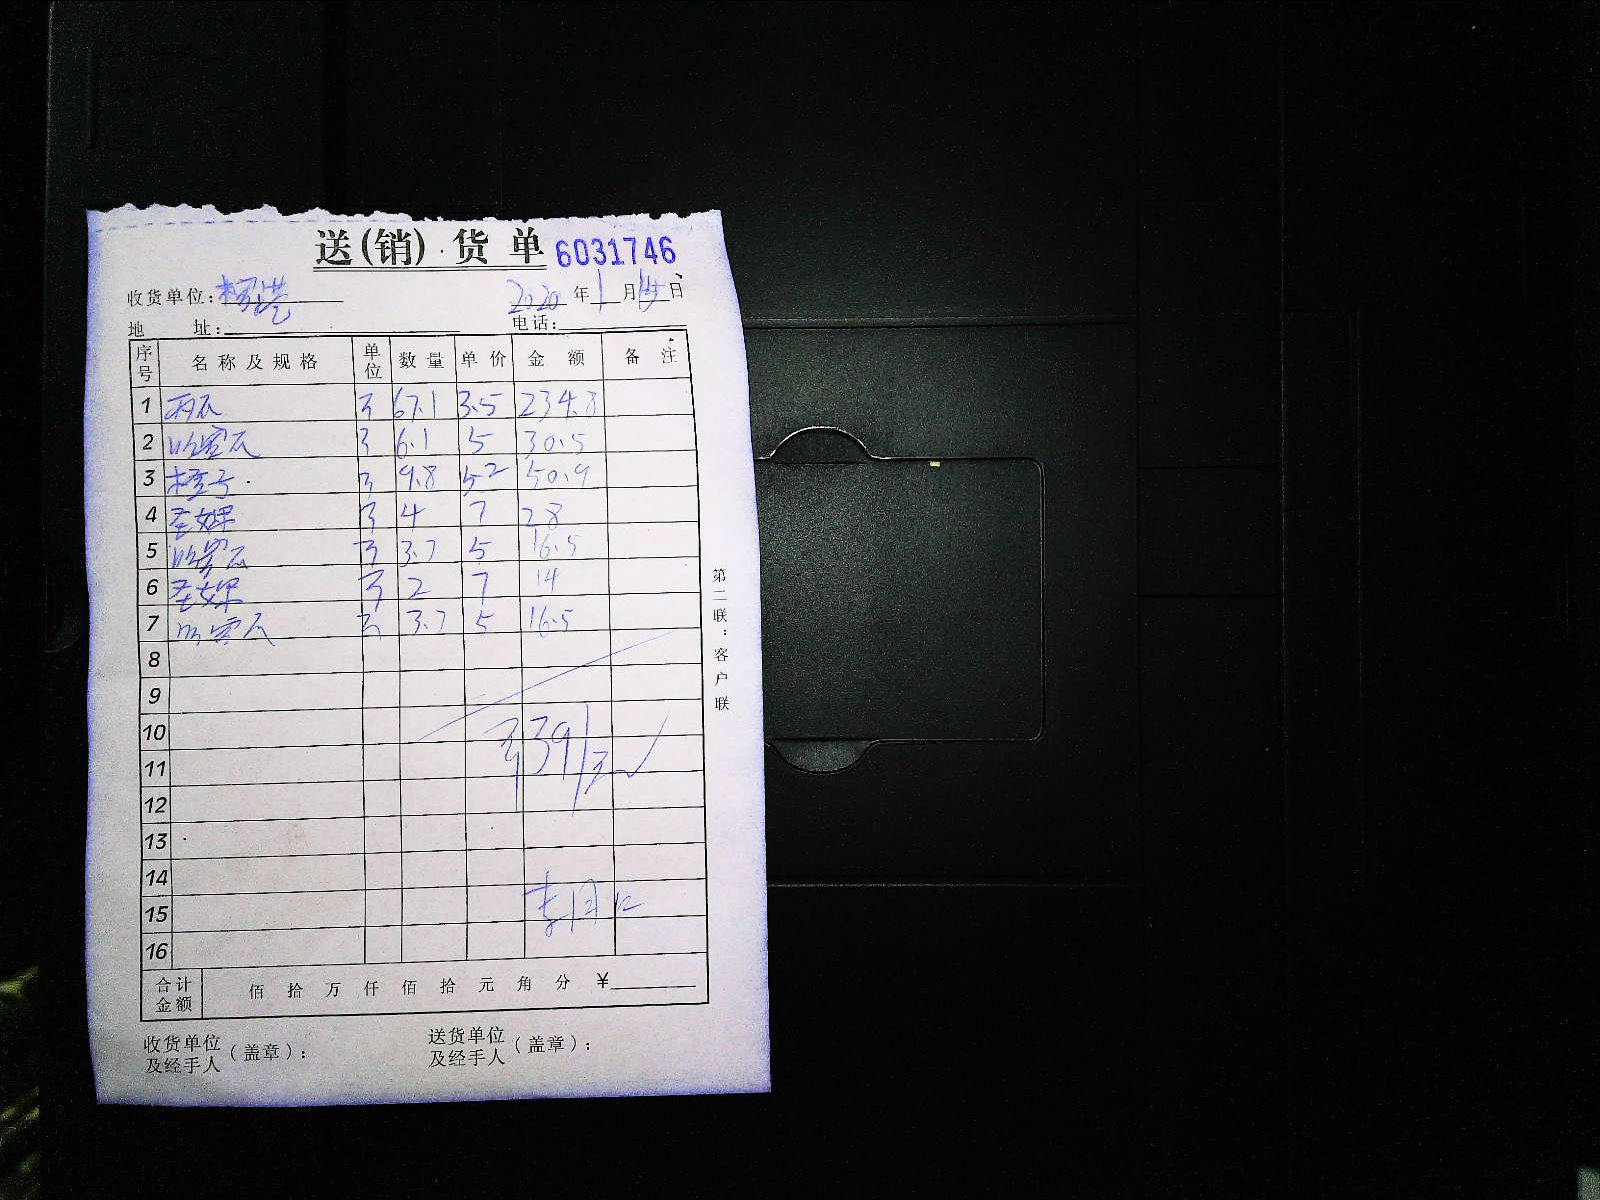 送(销)货单 6031746
收货单位: 2020年1月14日
地 址: 电话:
序号 名称及规格 单位 数量 单价 金额 备注
1 西瓜 斤 67.1 3.5 234.8
2 哈密瓜 斤 6.1 5 30.5
3 橙子 斤 9.8 5.2 50.9
4 圣女果 斤 4 7 28
5 哈密瓜 斤 3.7 5 16.5
6 圣女果 斤 2 7 14
7 哈密瓜 斤 3.7 5 16.5
8
9
10
391元
11
12
13
14
15
16
合计金额 佰 拾 万 仟 佰 拾 元 角 分 ¥
收货单位及经手人(盖章): 送货单位及经手人(盖章):
第二联:客户联